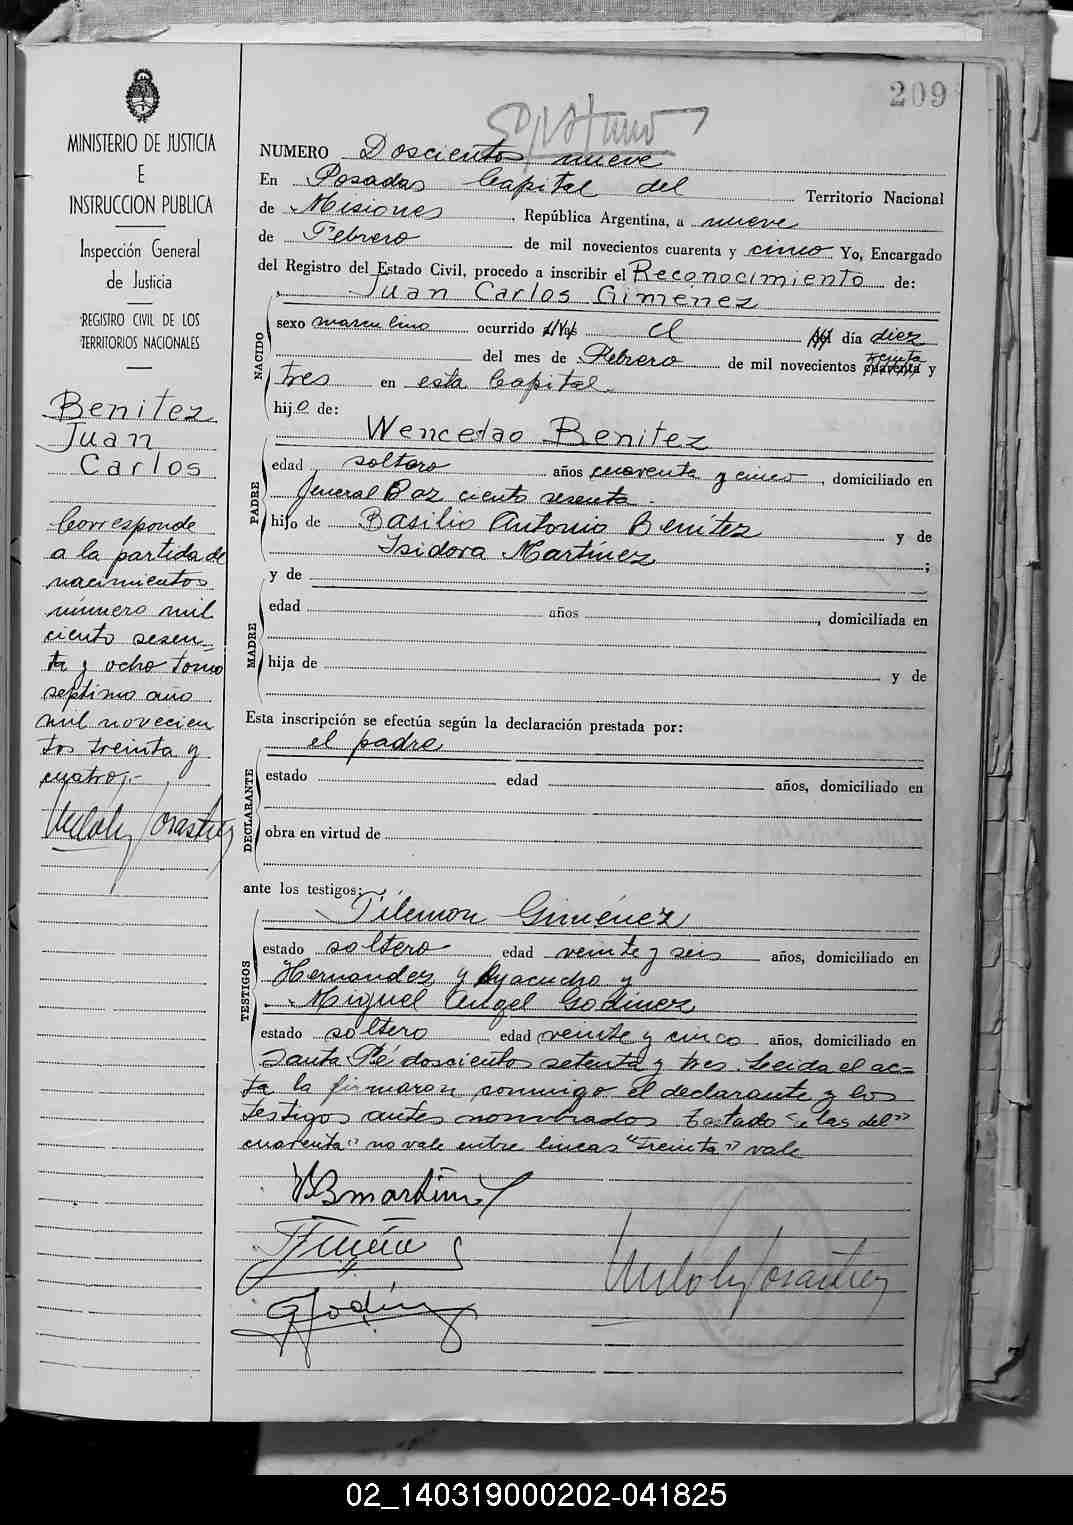 209
MINISTERIO DE JUSTICIA
E
INSTRUCCION PUBLICA
Inspección General
de Justicia
REGISTRO CIVIL DE LOS
TERRITORIOS NACIONALES
Benitez
Juan
Carlos
Corresponde
a la partida de
nacimientos
número mil
ciento sesen_
ta y ocho tomo
septimo año
mil novecien
tos treinta y
cuatro.-
NUMERO Doscientos nueve
En Posadas Capital del Territorio Nacional
de Misiones, República Argentina, a nueve
de Febrero de mil novecientos cuarenta y cinco Yo, Encargado
del Registro del Estado Civil, procedo a inscribir el Reconocimiento de:
Juan Carlos Gimenez
NACIDO
sexo masculino ocurrido el día diez
del mes de Febrero de mil novecientos cuarenta y
treinta
tres en esta Capital.
hijo de:
Wenceslao Benitez
PADRE
edad soltero años cuarenta y cinco, domiciliado en
General Paz ciento sesenta.
hijo de Basilio Antonio Benítez y de
Isidora Martínez;
MADRE
y de
edad años, domiciliada en
hija de y de
Esta inscripción se efectúa según la declaración prestada por:
el padre
DECLARANTE
estado edad años, domiciliado en
obra en virtud de
ante los testigos:
Filemon Giménez
TESTIGOS
estado soltero edad veinte y seis años, domiciliado en
Hernandez y Ayacucho y
Miguel Angel Godinez
estado soltero edad veinte y cinco años, domiciliado en
Santa Fé doscientos setenta y tres. Leida el ac=
ta la firmaron conmigo el declarante y los
testigos antes nombrados. Testado "elas del"
cuarenta" no vale entre lineas "treinta" vale
02_140319000202-041825